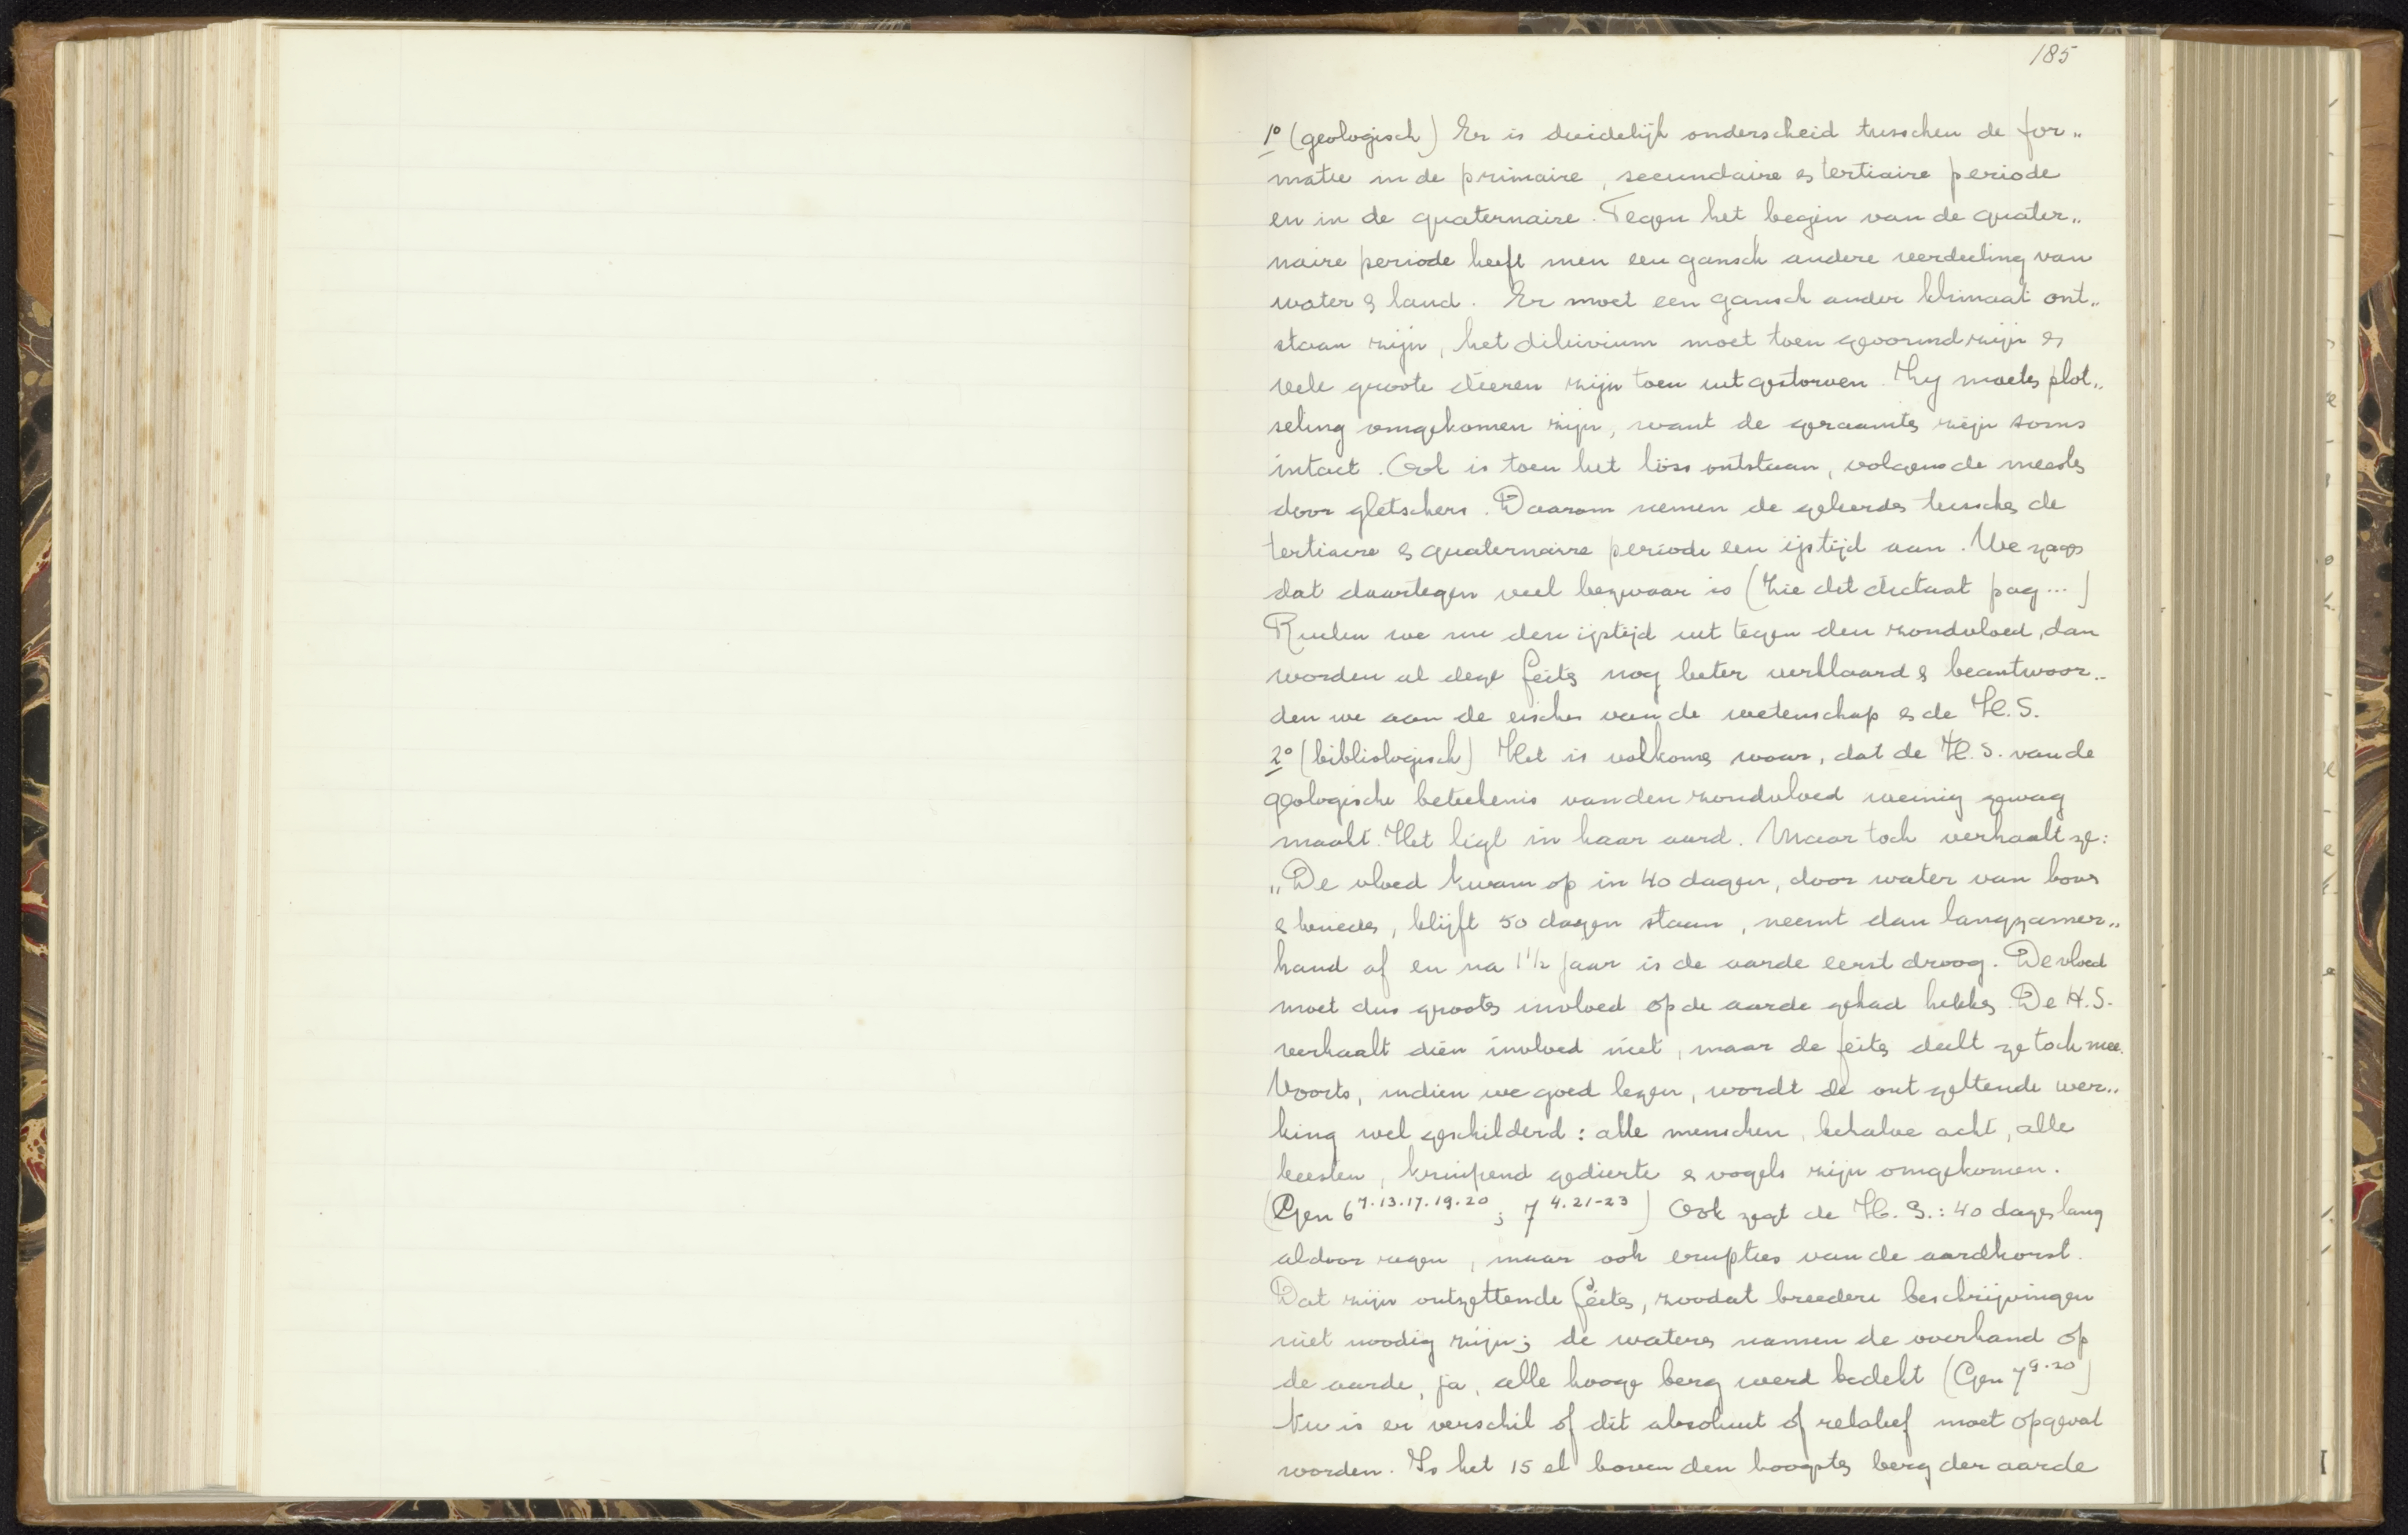 185
1° (geologisch) Er is duidelijk onderscheid tusschen de for„
matie in de primaire, secundaire & tertiaire periode
en in de quaternaire. Tegen het begin van de quater„
naire periode heeft men een gansch andere verdeeling van
water & land. Er moet een gansch ander klimaat ont„
staan zijn, het diluvium moet toen gevormd zijn &
vele groote dieren zijn toen uitgestorven. Zij moeten plot„
seling omgekomen zijn, want de geraamten zijn soms
intact. Ook is toen het löss ontstaan, volgens de meesten
door gletschers. Daarom nemen de geleerden tusschen de
tertiaire & quaternaire periode een ijstijd aan. We zagen
dat daartegen veel bezwaar is (zie dit dictaat pag...)
Ruilen we nu den ijstijd uit tegen den zondvloed, dan
worden al deze feiten nog beter verklaard & beantwoor„
den we aan de eischen van de wetenschap & de H.S.
2° (bibliologisch) Het is volkomen waar, dat de H.S. van de
geologische beteekenis van den zondvloed weinig gewag
maakt. Het ligt in haar aard. Maar toch verhaalt ze:
„De vloed kwam op in 40 dagen, door water van boven
& beneden, blijft 50 dagen staan, neemt dan langzamer„
hand af en na 1 1/2 jaar is de aarde eerst droog. De vloed
moet dus grooten invloed op de aarde gehad hebben. De H.S.
verhaalt dien invloed niet, maar de feiten deelt ze toch mee.
Voorts, indien we goed lezen, wordt de ontzettende wer„
king wel geschilderd: alle menschen, behalve acht, alle
beesten, kruipend gedierte & vogels zijn omgekomen.
(Gen 6 7.13.17.19.20; 7 4.21-23) Ook zegt de H.S.: 40 dagen lang
aldoor regen, maar ook erupties van de aardkorst.
Dat zijn ontzettende feiten, zoodat breedere beschrijvingen
niet noodig zijn; de wateren namen de overhand op
de aarde, ja, alle hooge berg werd bedekt (Gen 7 9.20)
Nu is er verschil of dit absoluut of relatief moet opgevat
worden. Is het 15 el boven den hoogsten berg der aarde